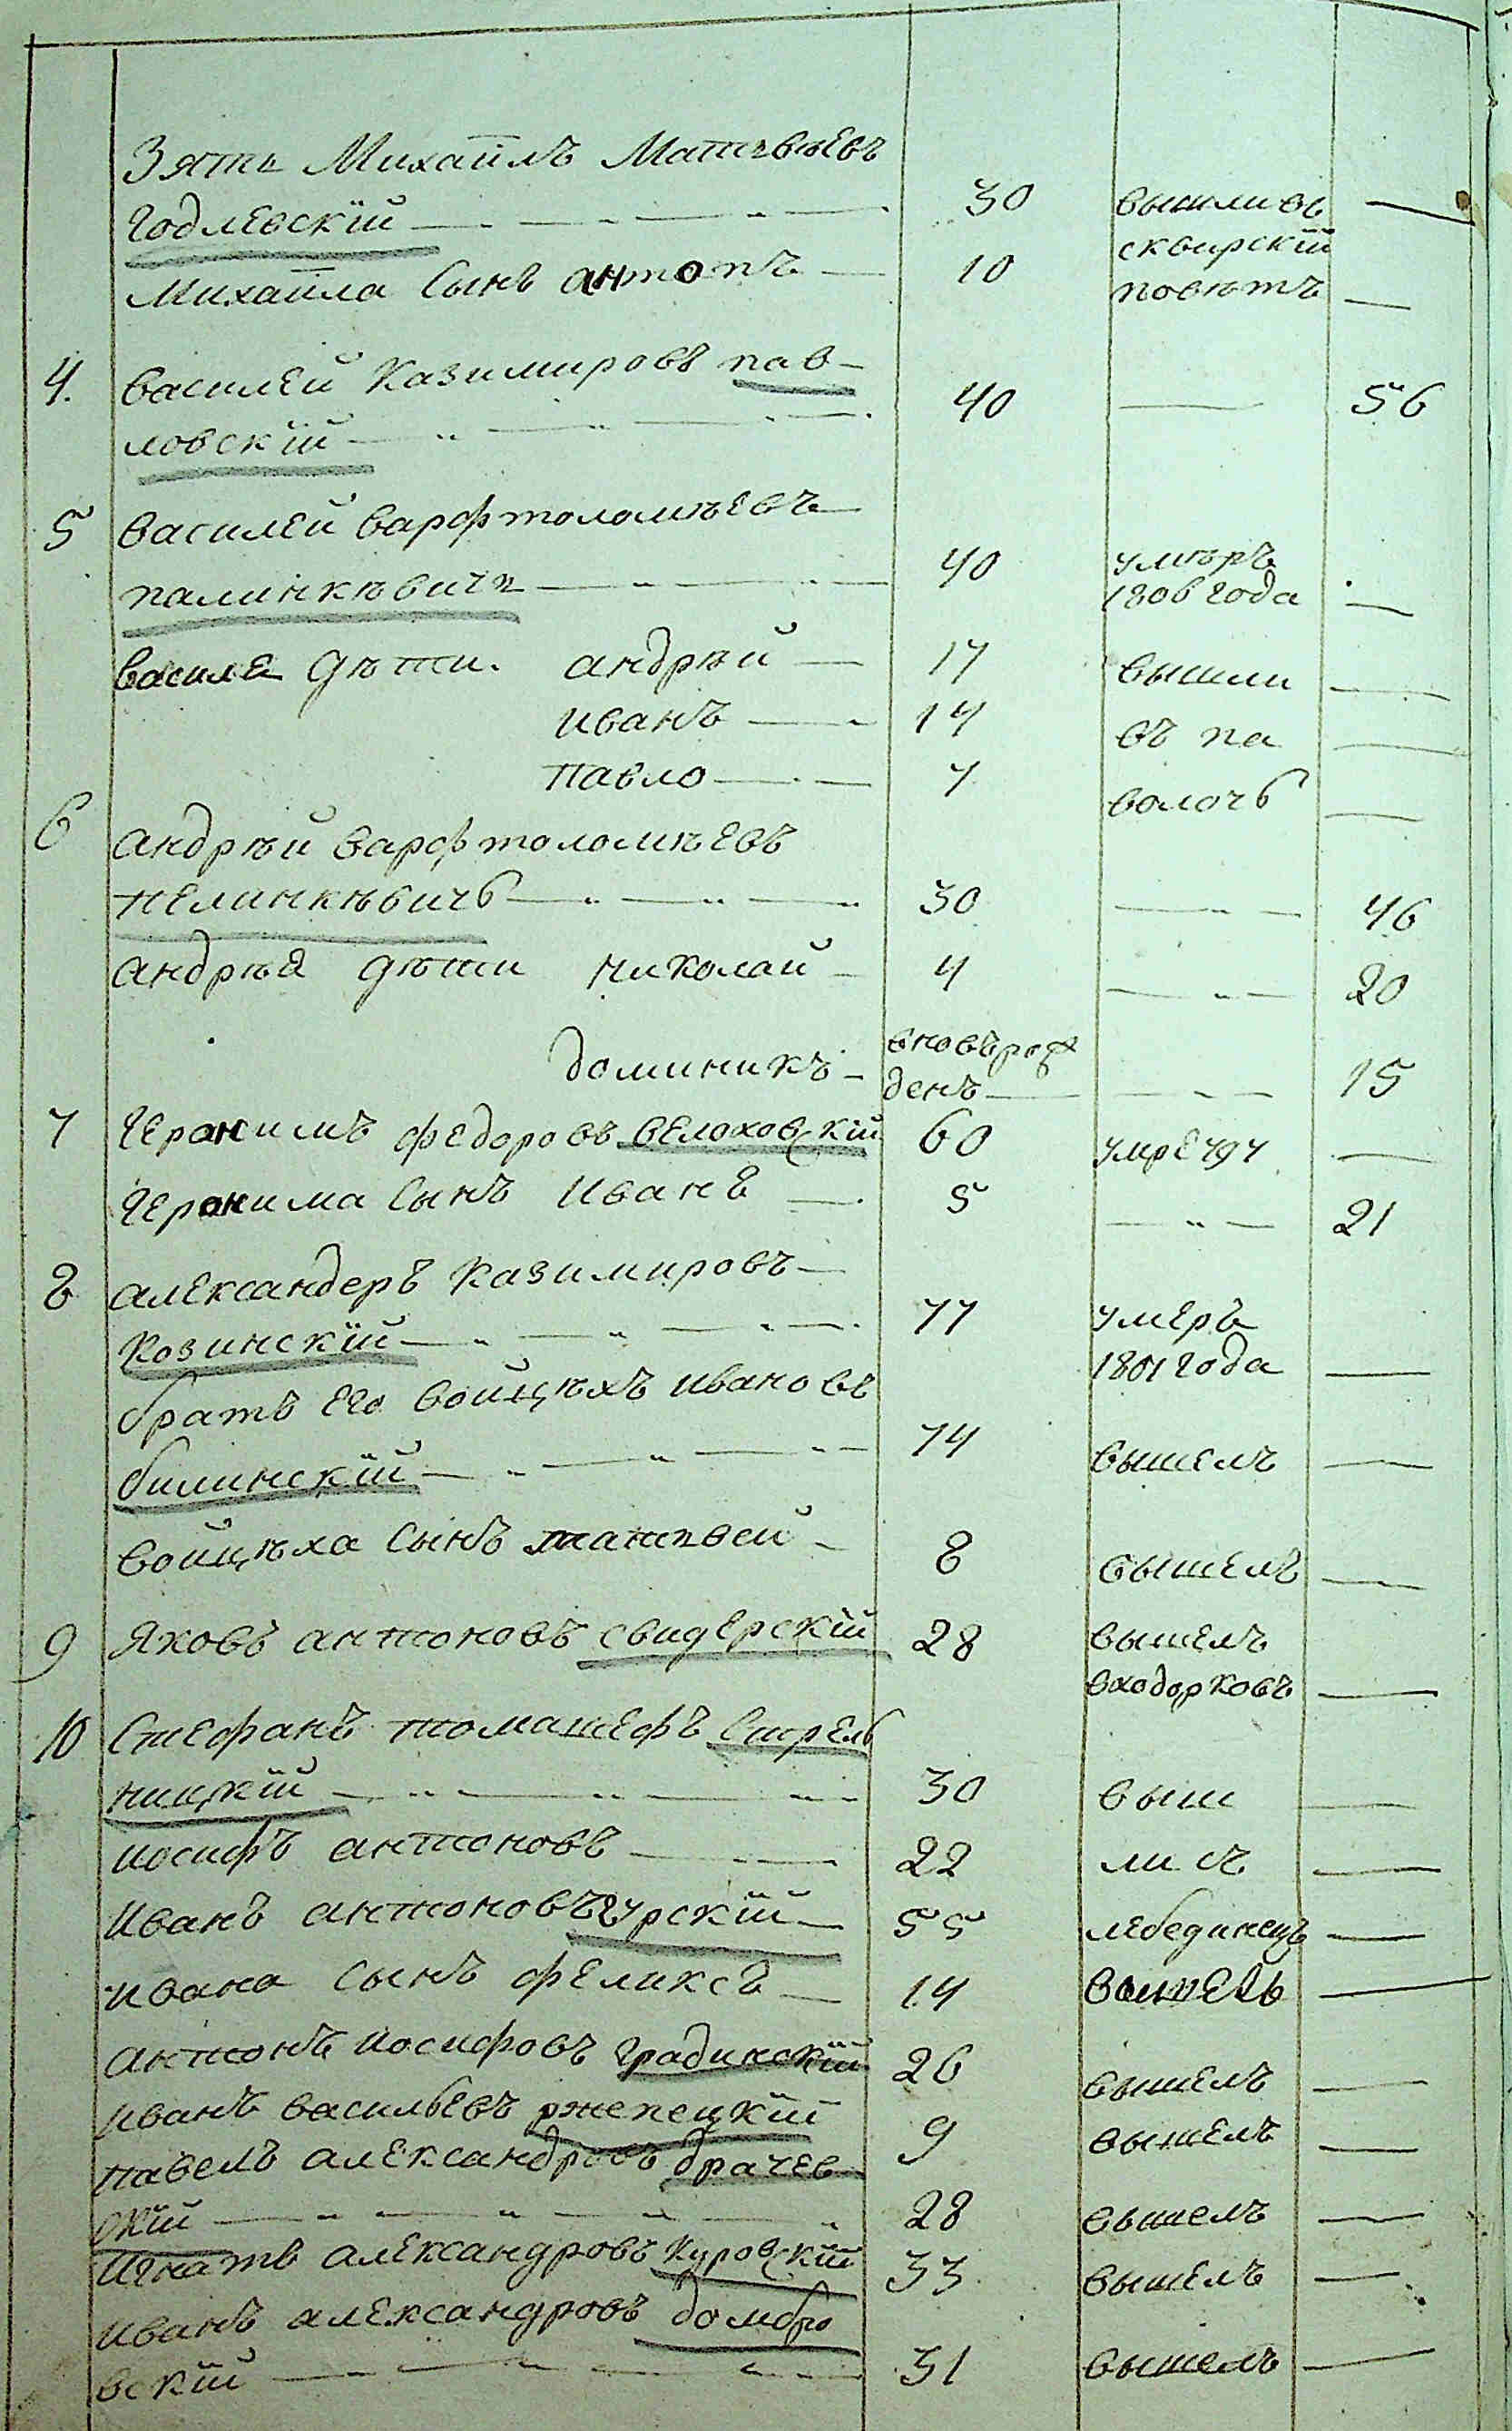 Зять Михаилъ Матвѣевъ
Годлевскій 30 вышли въ
сквирскій
Михаила сынъ антонъ 10 повѣтъ
4. василей Казимировъ пав-
ловскій 40 56
5 василей варфтоломѣевъ
палинкѣвичь 40 умѣръ
1806 года
василя дѣти. андрѣй 17 вышли
иванъ 14 въ па
павло 7 волочь
6 андрѣй варфтоломѣевъ
пелинкѣвичь 30 46
андрѣя дѣти николай 4 20
доминикъ вновърож
денъ 15
7 Геронимъ федоровъ велоховскій 60 умре 797
Геронима сынъ иванъ 5 21
8 александеръ Казимировъ
Козинскій 77 умеръ
1801 года
братъ его войцѣхъ ивановъ
билинскій 74 вышелъ
войцѣха сынъ матвей 8 вышелъ
9 яковъ антоновъ свидерскій 28 вышелъ
входорковъ
10 Стефанъ томашефъ Стрель
ницкій 30 выш
иосифъ антоновъ 22 ли съ
иванъ антоновъ гурскій 55 лебединецъ
ивана сынъ феликсъ 14
антонъ иосифовъ градинскій 26 вышелъ
иванъ васильевъ ржепецкій 9 вышелъ
павелъ александровъ драчев
скій 28 вышелъ
игнатъ александровъ куровскій 33 вышелъ
иванъ александровъ домбро
вскій 31 вышелъ